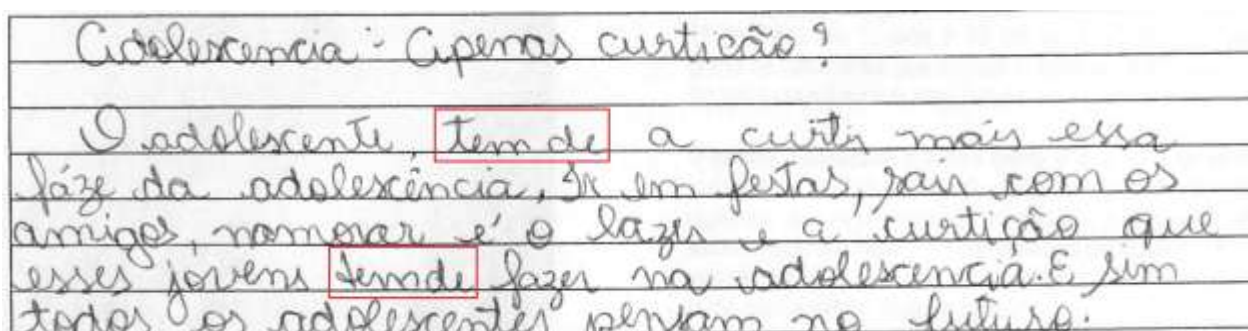 Adolescencia - Apenas curticão?
O adolescente, tem de a curtir mais essa
fáze da adolescência, Ir em festas, sair com os
amigos, namorar é o lazer e a curtição que
esses jóvens temde fazer na adolescencia. E sim
todos os adolescentes pensam no futuro.